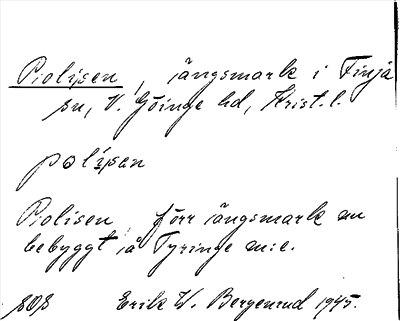 Polisen, ängsmark i Finja
sn, V. Göinge hd, Krist. l.
polisen
Polisen, förr ängsmark nu
bebyggt å Tyringe m:e.
Erik W. Bergenrud 1945.